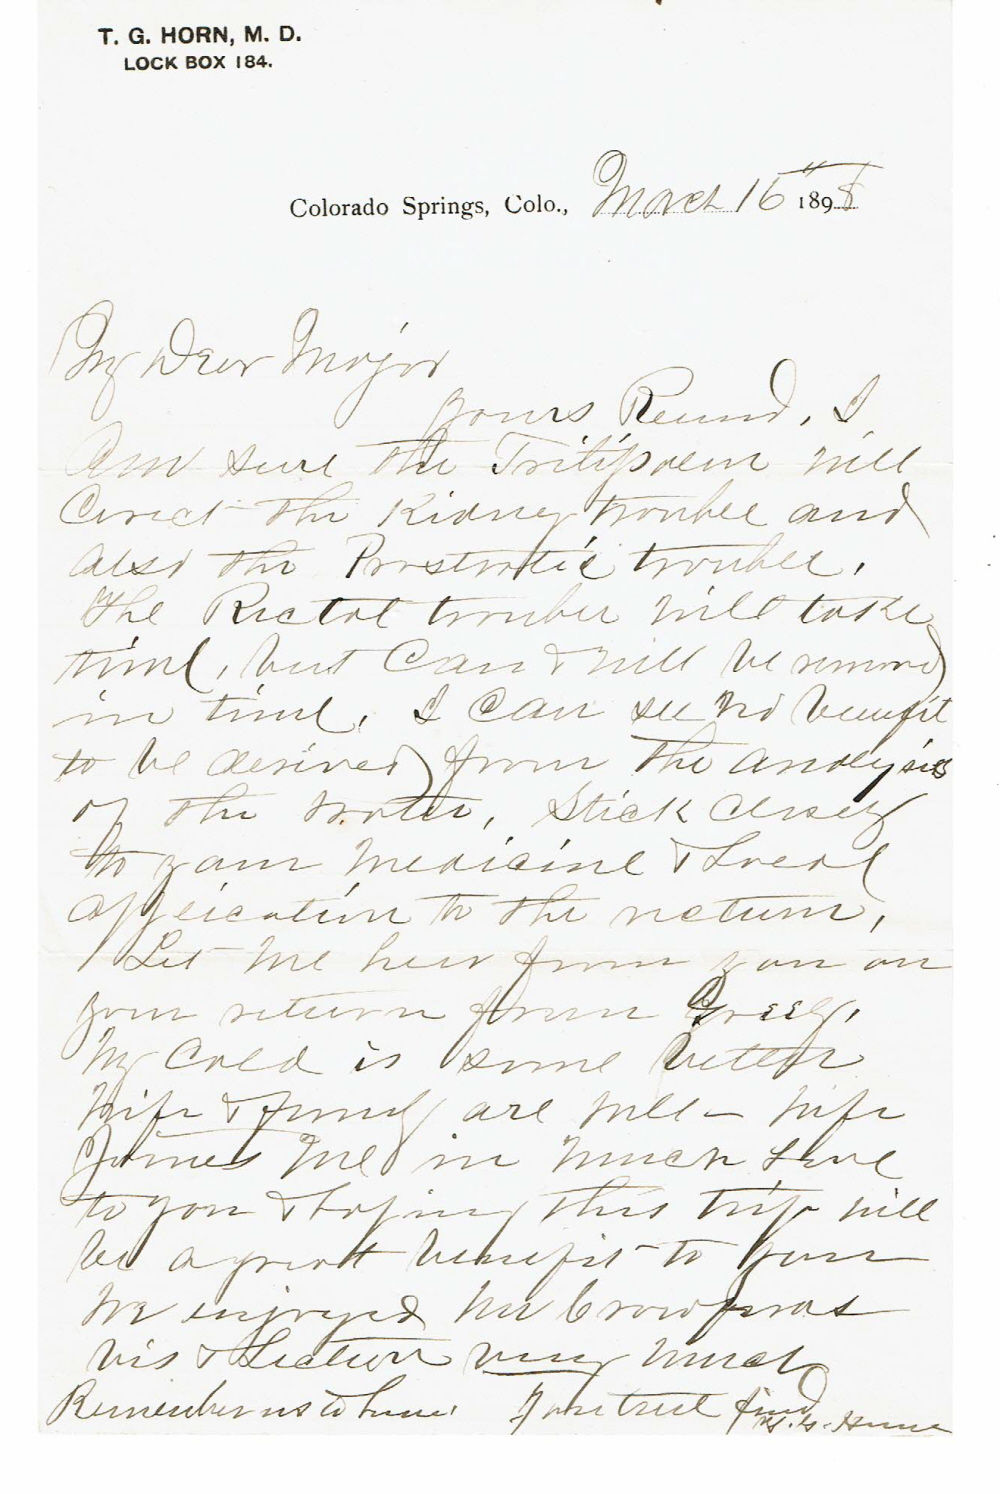 T. G. HORN, M. D.
LOCK BOX 184.
Colorado Springs, Colo., March 16th 1898
My Dear Major
Yours Recind, I
Am sure the Tritipalm will
Corect the Kidney trouble and
also the Prostratic trouble.
The Rectal trouble will take
time, but Can & will be removed
in time. I can see no benefit
to be derived from the analysis
of the water, Stick closely
to your Medicine & Local
application to the rectum,
Let Me hear from you on
your return from Greely.
My Cold is some better
Wife & family are well - wife
Joines Me in Much Love
to you & hoping this trip will
be a great benefit to you
We enjoyed
vis & Lecture very much
Remember us to him. Your true find
T. G. Horn